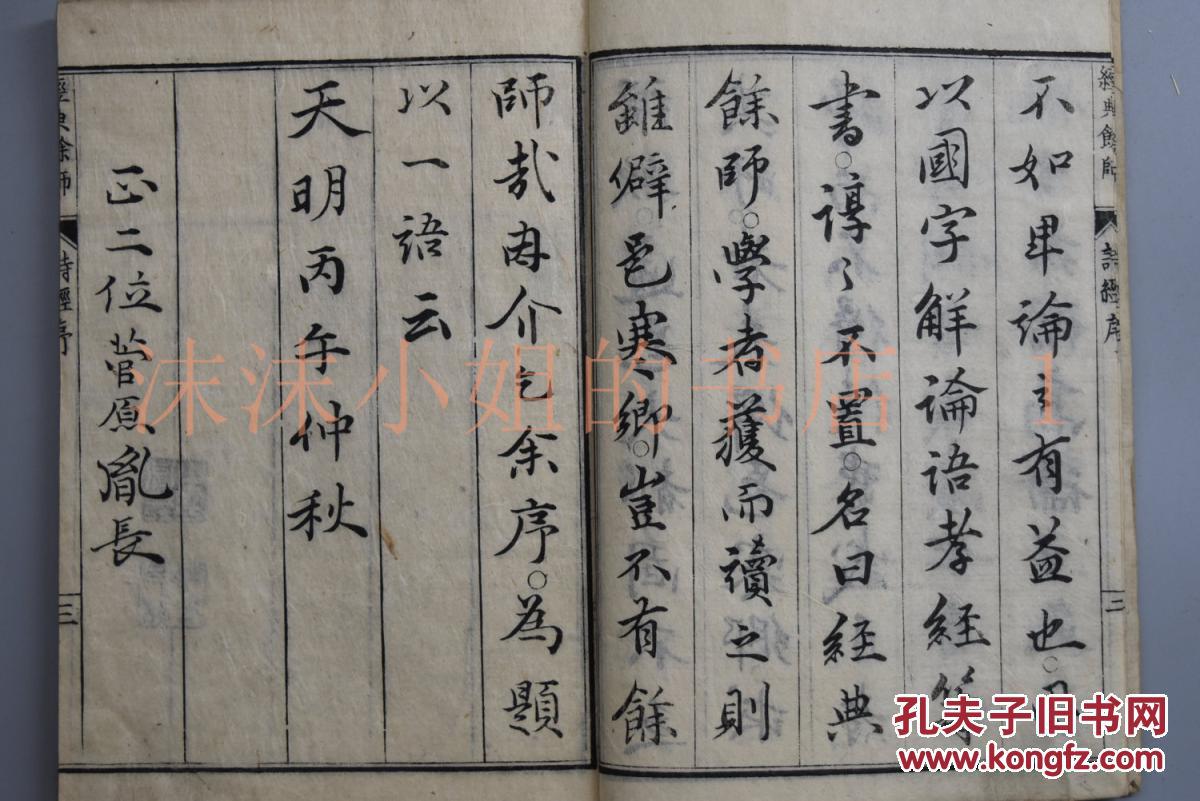 經典餘師 詩經序 三
不如卑論之有益也○
以國字解論語孝經等
書○諄々不置○名曰經典
餘師○學者獲而讀之則
雖僻邑寒鄉○豈不有餘
師哉毋介乞余序○為題
以一語云
天明丙午仲秋
正二位菅原胤長
經典餘師 詩經序 三
沫沫小姐的书店 1
孔夫子旧书网
www.kongfz.com